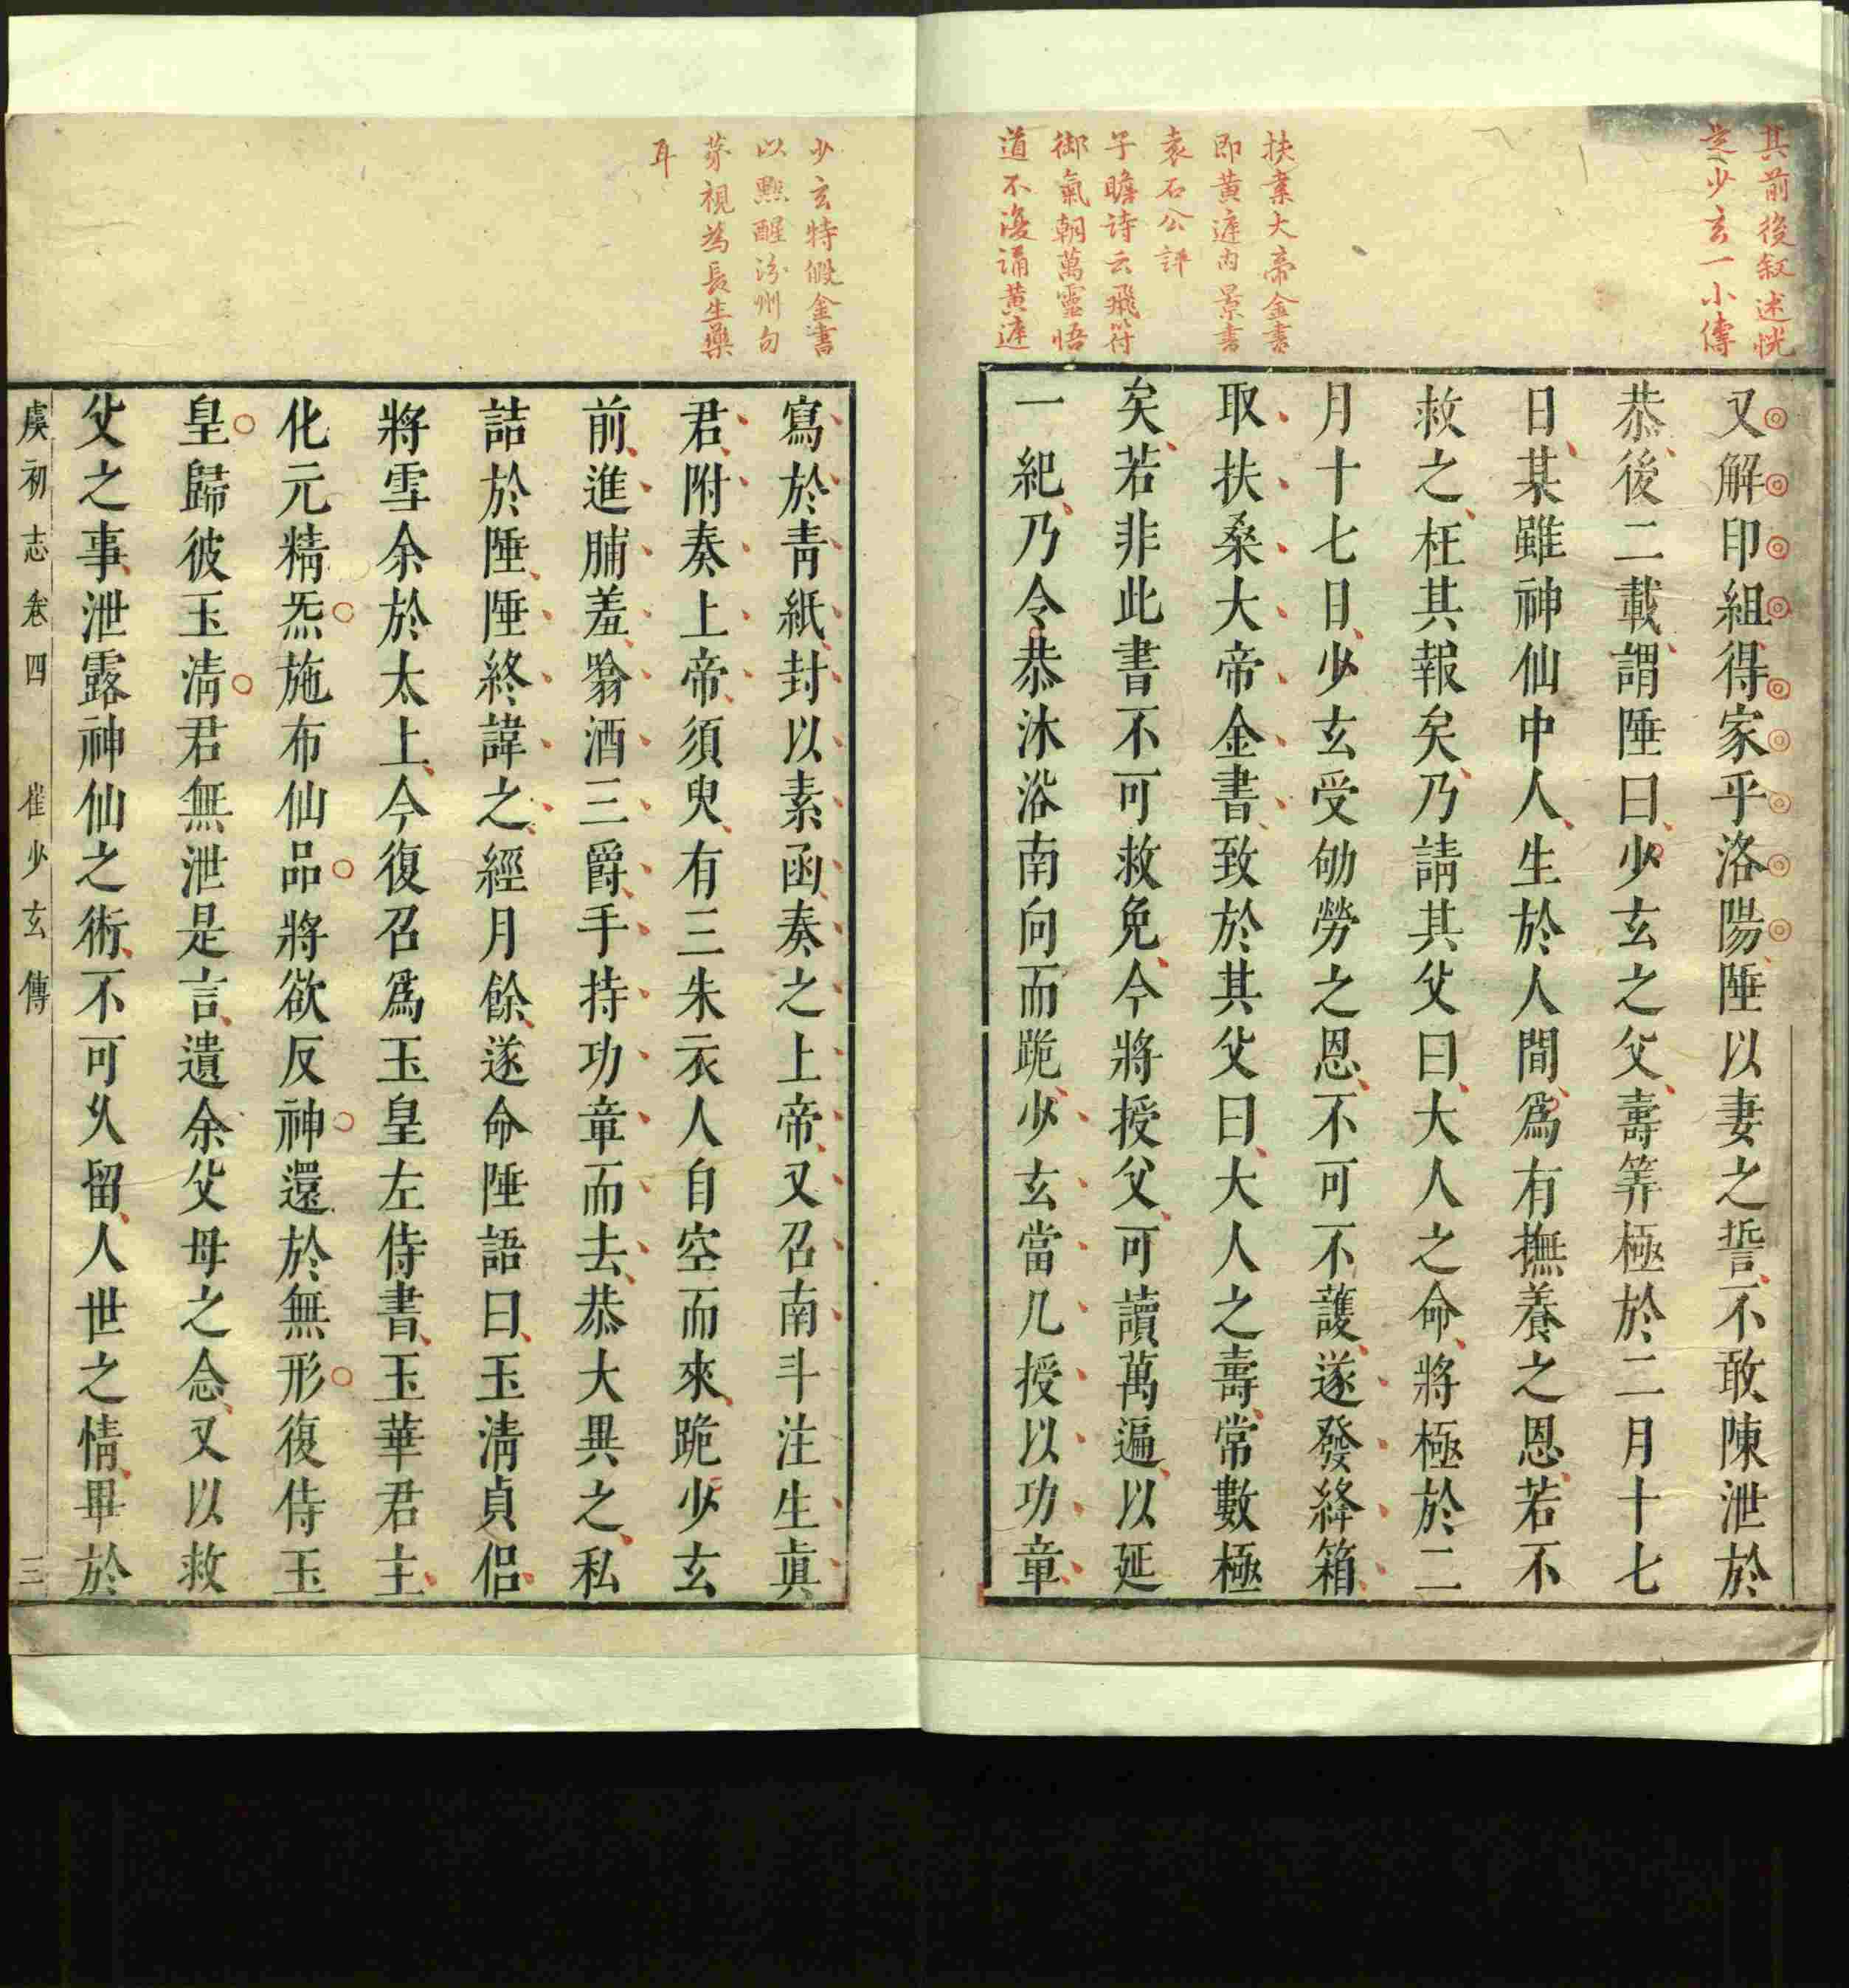 其前後叙述恍
是少玄一小傳
扶桒大帝金書
即黃庭內景書
袁石公評
子瞻詩云飛符
御氣朝萬靈悟
道不復誦黃庭
又解印組得家乎洛陽陲以妻之誓不敢陳泄於
恭後二載謂陲曰少玄之父壽筭極於二月十七
日某雖神仙中人生於人間爲有撫養之恩若不
救之枉其報矣乃請其父曰大人之命將極於二
月十七日少玄受劬勞之恩不可不護遂發絳箱
取扶桑大帝金書致於其父曰大人之壽常數極
矣若非此書不可救免今將授父可讀萬遍以延
一紀乃令恭沐浴南向而跪少玄當几授以功章
少玄特假金書
以點醒汾州勿
芽視為長生藥
耳
寫於青紙封以素函奏之上帝又召南斗注生眞
君附奏上帝須臾有三朱衣人自空而來跪少玄
前進脯羞噏酒三爵手持功章而去恭大異之私
詰於陲陲終諱之經月餘遂命陲語曰玉清貞侶
將雪余於太上今復召爲玉皇左侍書玉華君主
化元精炁施布仙品將欲反神還於無形復侍玉
皇歸彼玉清君無泄是言遺余父母之念又以救
父之事泄露神仙之術不可久留人世之情畢於
虞初志卷四 崔少玄傳 三